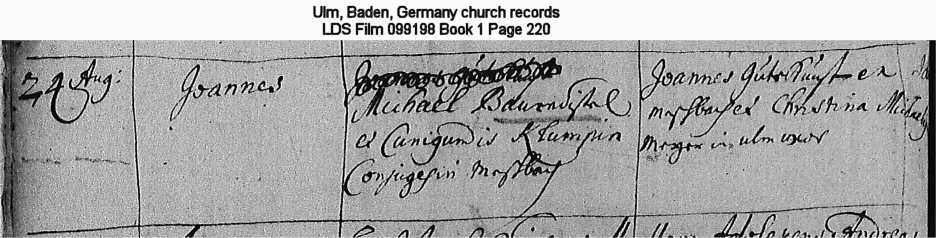 Ulm, Baden, Germany church records
LDS Film 099198 Book 1 Page 220
24 Aug:
Joannes
Michael Baurendistel
et Cunigundis Klumpin
Conjuges in Mosbach
Joannes Gutekunst ex
Christina
Meyer in ulm uxor